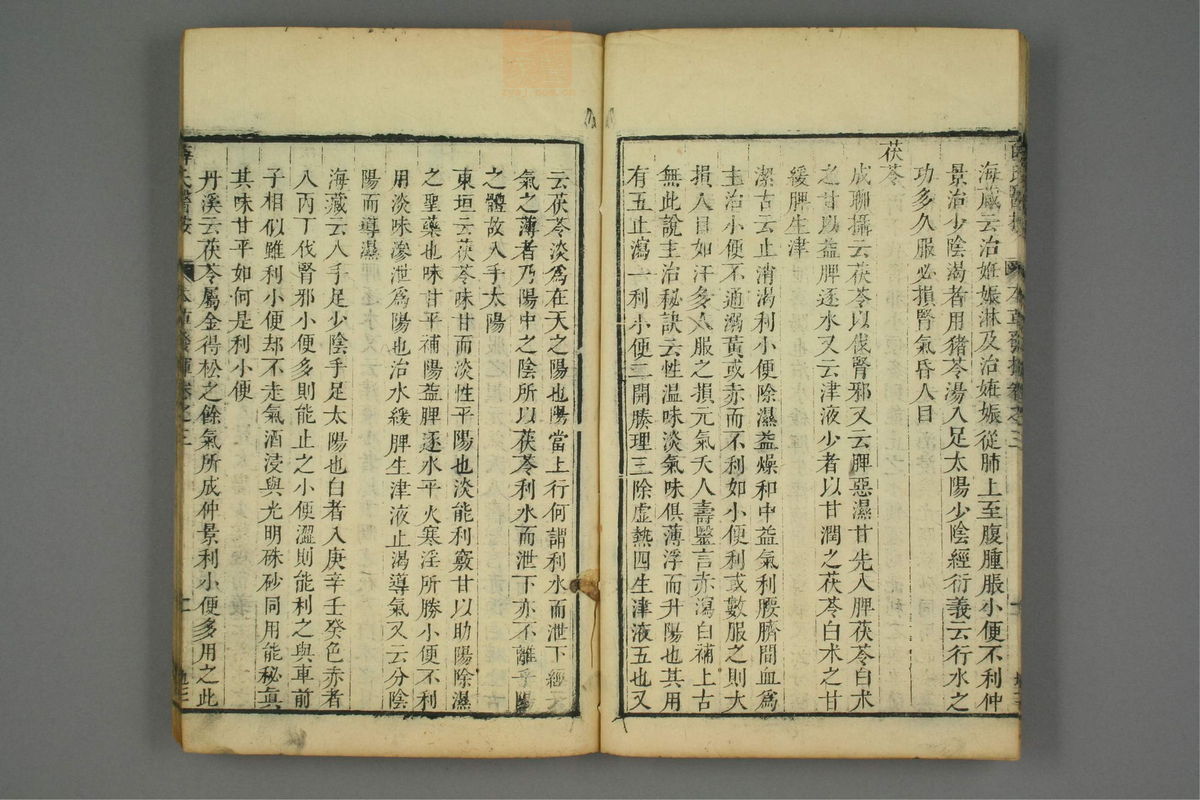 海藏云治妊娠淋及治妊娠從腳上至腹腫脹小便不利仲
景治少陰渴者用猪苓湯入足太陽少陰經衍義云行水之
功多久服必損腎氣昏人目
茯苓
成聊攝云茯苓以伐腎邪又云脾惡濕甘先入脾茯苓白术
之甘以益脾逐水又云津液少者以甘潤之茯苓白术之甘
緩脾生津
潔古云止消渴利小便除濕益燥和中益氣利腰臍間血爲
主治小便不通溺黃或赤而不利如小便利或數服之則大
損人目如汗多人服之損元氣夭人壽毉言赤瀉白補上古
無此說主治秘訣云性溫味淡氣味俱薄浮而升陽也其用
有五止瀉一利小便二開腠理三除虛熱四生津液五也又
云茯苓淡爲在天之陽也陽當上行何謂利水而泄下經云
氣之薄者乃陽中之陰所以茯苓利水而泄下亦不離乎陽
之體故入手太陽
東垣云茯苓味甘而淡性平陽也淡能利竅甘以助陽除濕
之聖藥也味甘平補陽益脾逐水平火寒淫所勝小便不利
用淡味滲泄爲陽也治水緩脾生津液止渴導氣又云分陰
陽而導濕
海藏云入手足少陰手足太陽也白者入庚辛壬癸色赤者
入丙丁伐腎邪小便多則能止之小便澀則能利之與車前
子相似雖利小便却不走氣酒浸與光明硃砂同用能秘眞
其味甘平如何是利小便
丹溪云茯苓屬金得松之餘氣所成仲景利小便多用之此
薛氏醫按
本草發揮卷之三